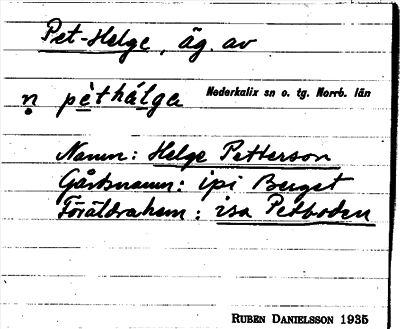 Pet-Helge, äg. av
ṇ pèthálga Nederkalix sn o. tg. Norrb. län
Namn: Helge Petterson
Gårdsnamn: ipi Berget
Föräldrahem: isa Petboden
RUBEN DANIELSSON 1935